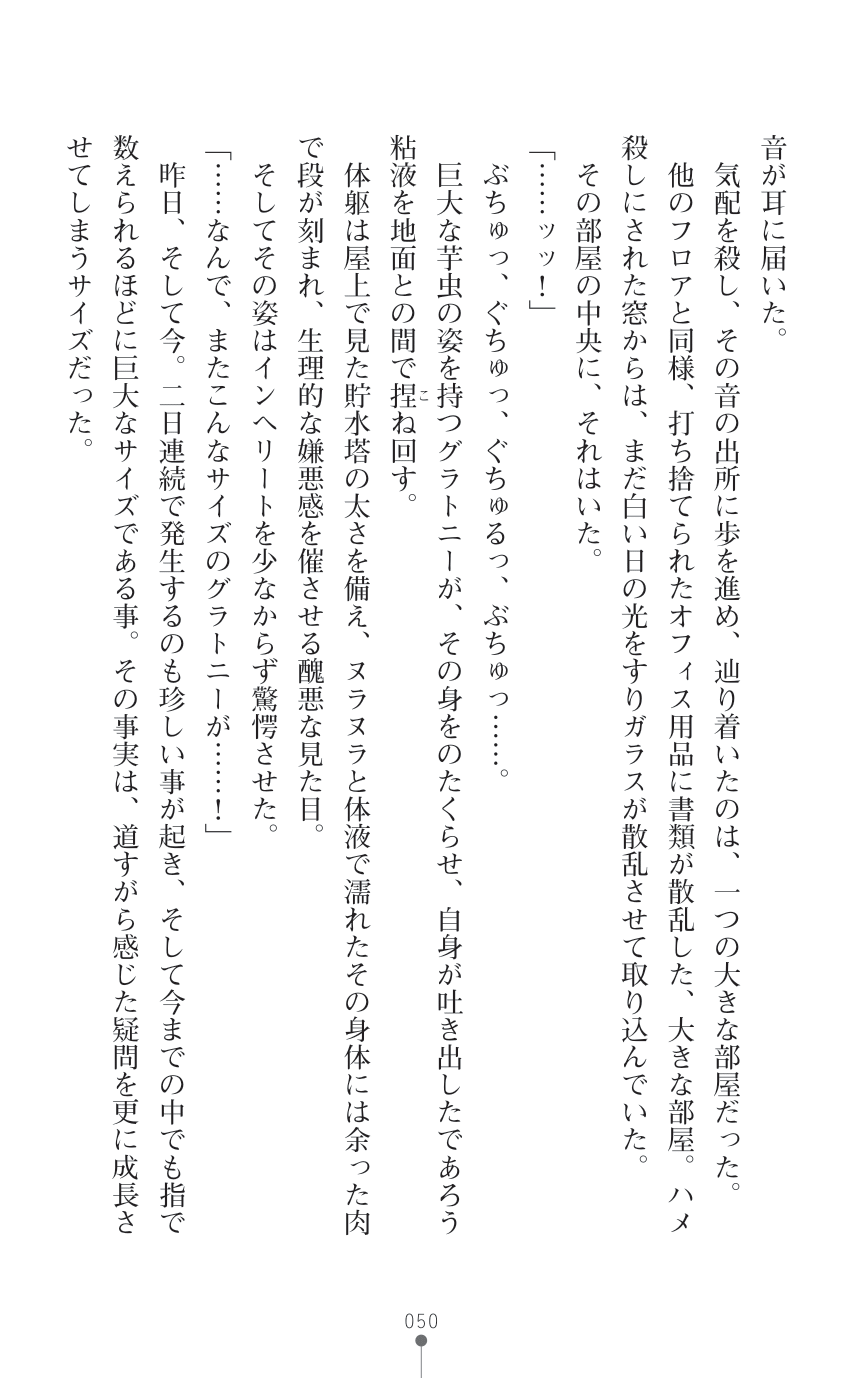 音が耳に届いた。
　気配を殺し、その音の出所に歩を進め、辿り着いたのは、一つの大きな部屋だった。
　他のフロアと同様、打ち捨てられたオフィス用品に書類が散乱した、大きな部屋。ハメ
殺しにされた窓からは、まだ白い日の光をすりガラスが散乱させて取り込んでいた。
　その部屋の中央に、それはいた。
「……ッッ！」
　ぶちゅっ、ぐちゅっ、ぐちゅるっ、ぶちゅっ……。
　巨大な芋虫の姿を持つグラトニーが、その身をのたくらせ、自身が吐き出したであろう
粘液を地面との間で捏こね回す。
　体躯は屋上で見た貯水塔の太さを備え、ヌラヌラと体液で濡れたその身体には余った肉
で段が刻まれ、生理的な嫌悪感を催させる醜悪な見た目。
　そしてその姿はインヘリートを少なからず驚愕させた。
「……なんで、またこんなサイズのグラトニーが……！」
　昨日、そして今。二日連続で発生するのも珍しい事が起き、そして今までの中でも指で
数えられるほどに巨大なサイズである事。その事実は、道すがら感じた疑問を更に成長さ
せてしまうサイズだった。
050